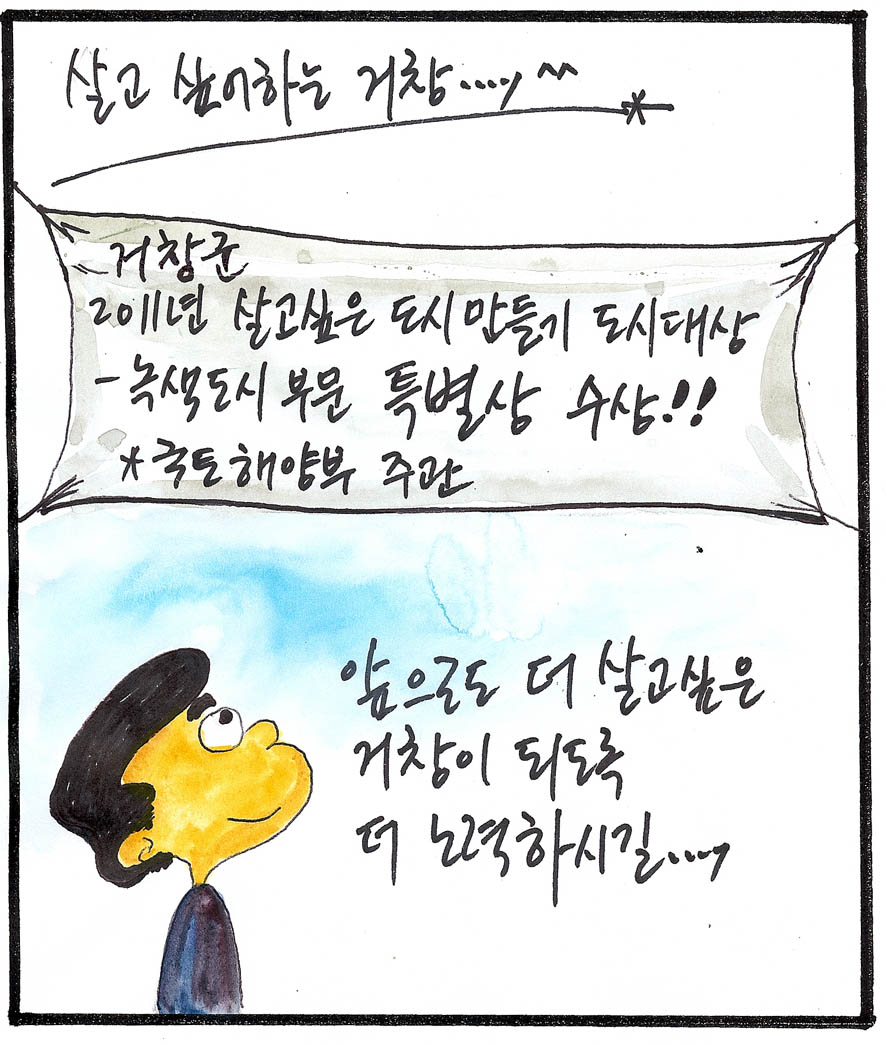 살고 싶어하는 거창....., ^^
거창군
2011년 살고싶은 도시만들기 도시대상
- 녹색도시 부문 특별상 수상!!
* 국토해양부 주관
앞으로도 더 살고싶은
거창이 되도록
더 노력하시길....,